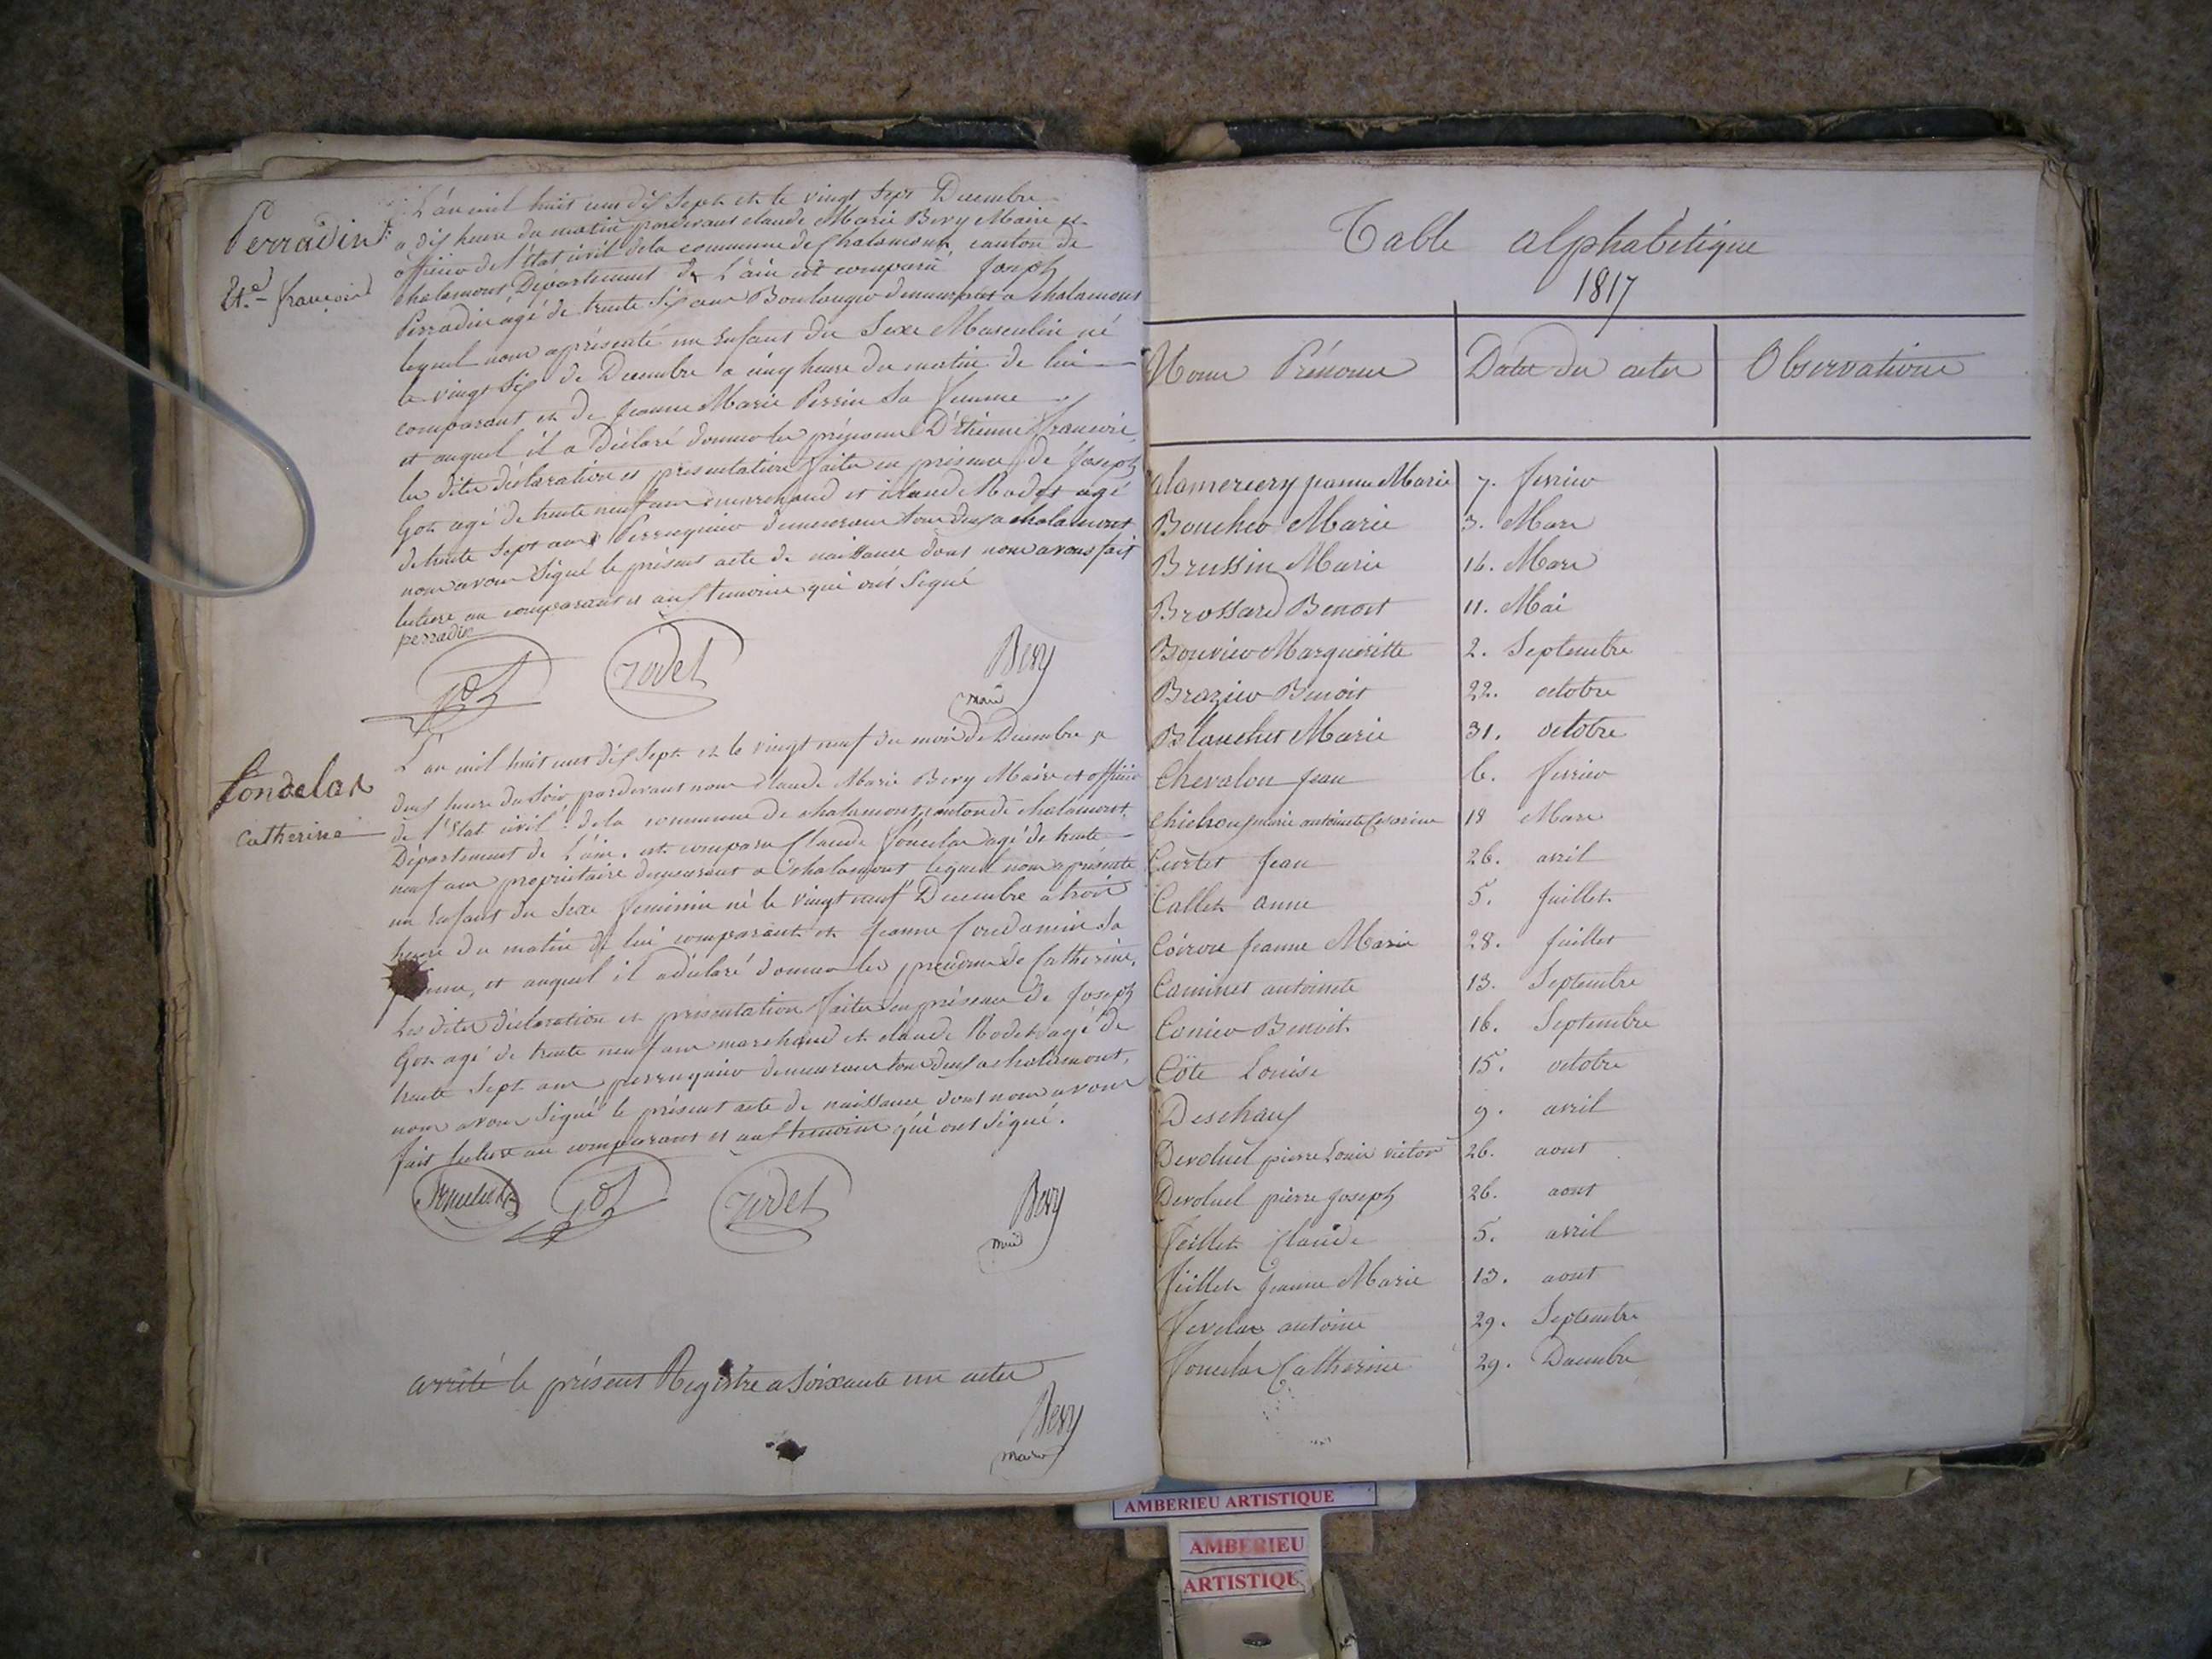 Perradin
Et.ne françois
L'an mil huit cent dix Sept et le vingt Sept Decembre
a dix heure du matin pardevant claude Marie Bery Maire et
officier de l'état civil dela commune de Chalamont, canton de
chalamont, Département de L'ain est comparu Joseph
Perradin agé de trente Six ans Boulanger demeurant a chalamont
lequel nous a présenté un Enfant du Sexe Masculin né
le vingt Six de Decembre a cinq heure du matin de lui
comparant et de Jeanne Marie Perrin Sa femme
et auquel il a Déclaré donner les prénoms D'étienne françois
les dites déclaration et présentation faites en présence de Joseph
Got agé de trente neuf ans marchand et claude Rodet agé
de trente Sept ans Perruquier demeurant tous deux a chalamont
nous avons Signé le présent acte de naissance dont nous avons fait
lecture au comparant et aux temoins qui ont Signé
perradin
got
rodet
Bery
maire
catherine
L'an mil huit cent dix Sept et le vingt neuf du mois de Decembre a
deux heure du Soir pardevant nous claude Marie Bery Maire et officier
de l'Etat civil dela commune de chalamont, canton de chalamont,
Département de L'ain. est comparu Claude agé de trente
neuf ans proprietaire demeurant a chalamont lequel nous a présenté
un Enfant du Sexe feminin né le vingt neuf Decembre a trois
heure du matin de lui comparant et Jeanne Sa
femme, et auquel il a déclaré donner les prenoms de Catherine,
Les dites déclaration et presentation faites en présence de Joseph
Got agé de trente neuf ans marchand et claude Rodet agé de
trente Sept ans perruquier demeurant tous deux a chalamont,
nous avons Signé le présent acte de naissance dont nous avons
fait lecture au comparant et aux temoins qui ont Signé.
got
rodet
Bery
maire
arrêté le présent Registre a Soixante un actes
Bery
maire
Table alphabétique
1817
Noms Prénoms Dates des actes Observations
Jeanne Marie 7. fevrier
Boucher Marie 3. Mars
Brussin Marie 14. Mars
Brossard Benoit 11. Mai
Bouvier Margueritte 2. Septembre
Brazier Benoit 22. octobre
Blanchet Marie 31. octobre
Chevalon Jean 6. fevrier
marie antoinete Cesarine 18 Mars
Curtet Jean 26. avril
Callet anne 5. Juillet
Coiron Jeanne Marie 28. Juillet
Caminet antoinete 13. Septembre
Canier Benoit 16. Septembre
Côte Louise 15. octobre
Deschaux 9. avril
Devoluet pierre Louis victor 26. aout
Devoluet pierre Joseph 26. aout
feillet Claude 5. avril
feillet Jeanne Marie 13. aout
antoine 29. Septembre
Catherine 29. Decembre
AMBERIEU ARTISTIQUE
AMBERIEU
ARTISTIQUE